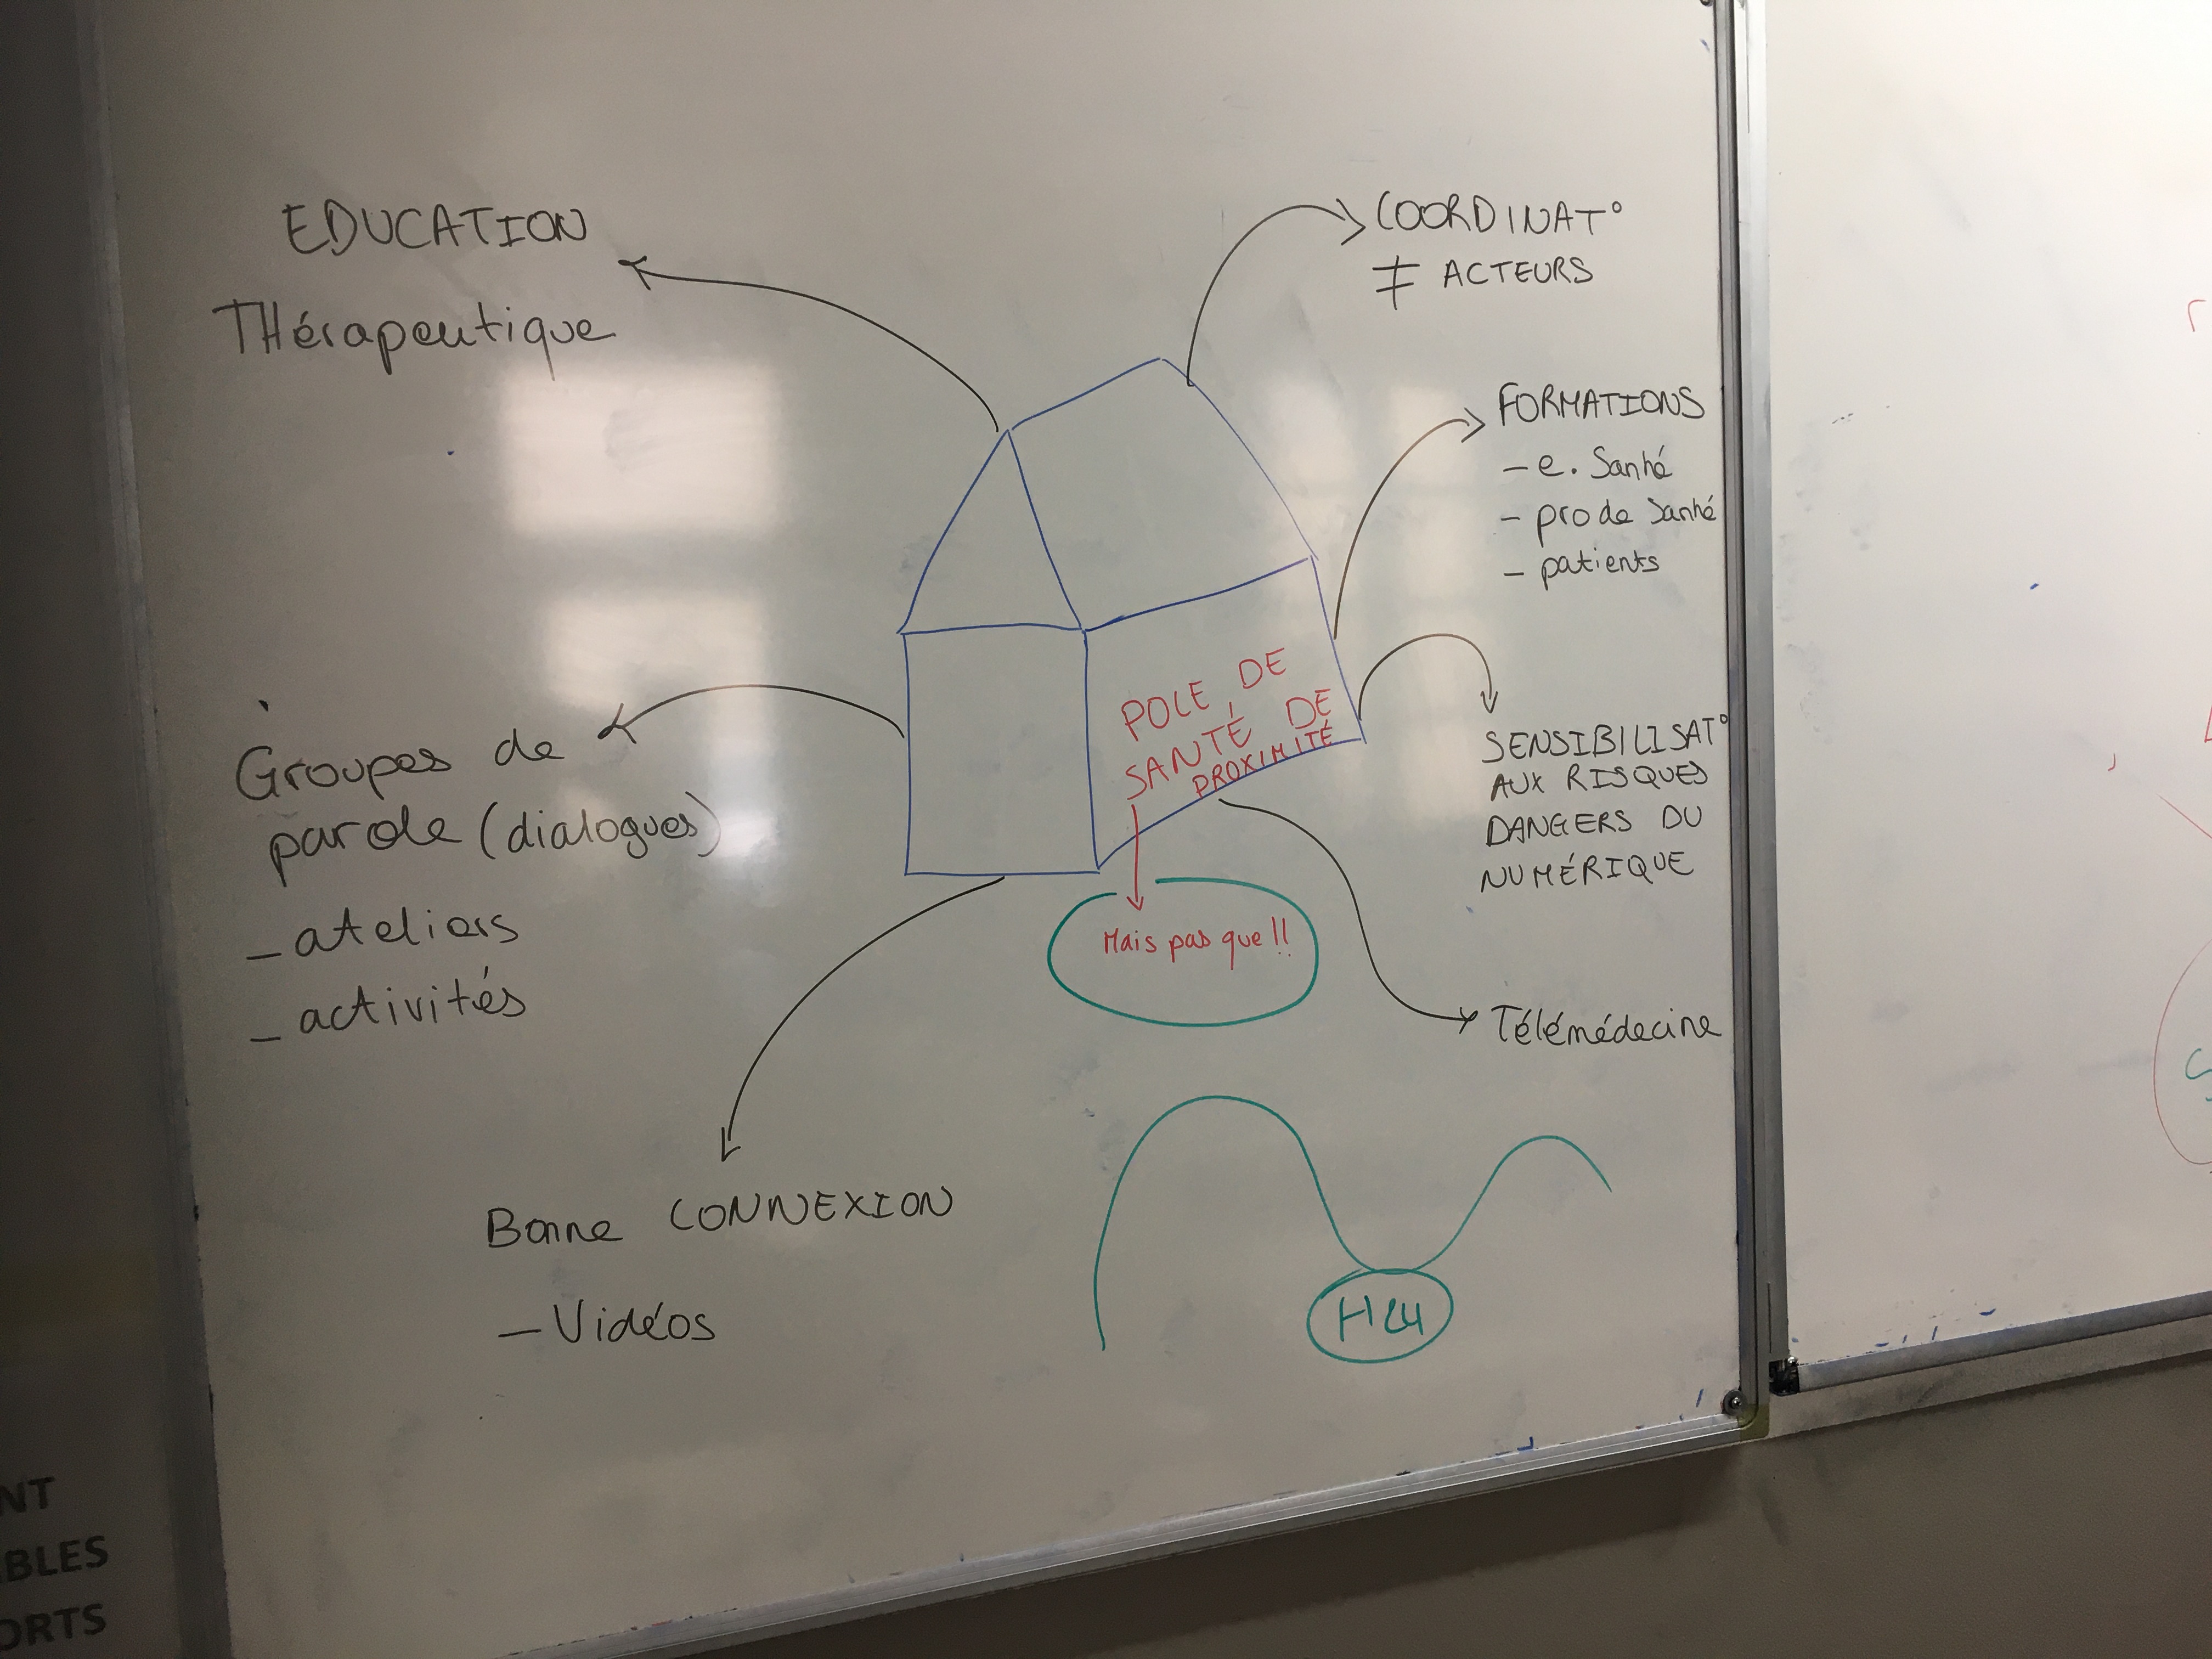 EDUCATION
THérapeutique
COORDINAT°
≠ ACTEURS
FORMATIONS
- e. Santé
- pro de Santé
- patients
POLE DE
SANTÉ DE
PROXIMITÉ
Mais pas que !!
SENSIBILISAT°
AUX RISQUES
DANGERS DU
NUMÉRIQUE
Groupes de
parole (dialogues)
- ateliers
- activités
Télémédecine
Bonne CONNEXION
- Vidéos
H24
NT
BLES
ORTS